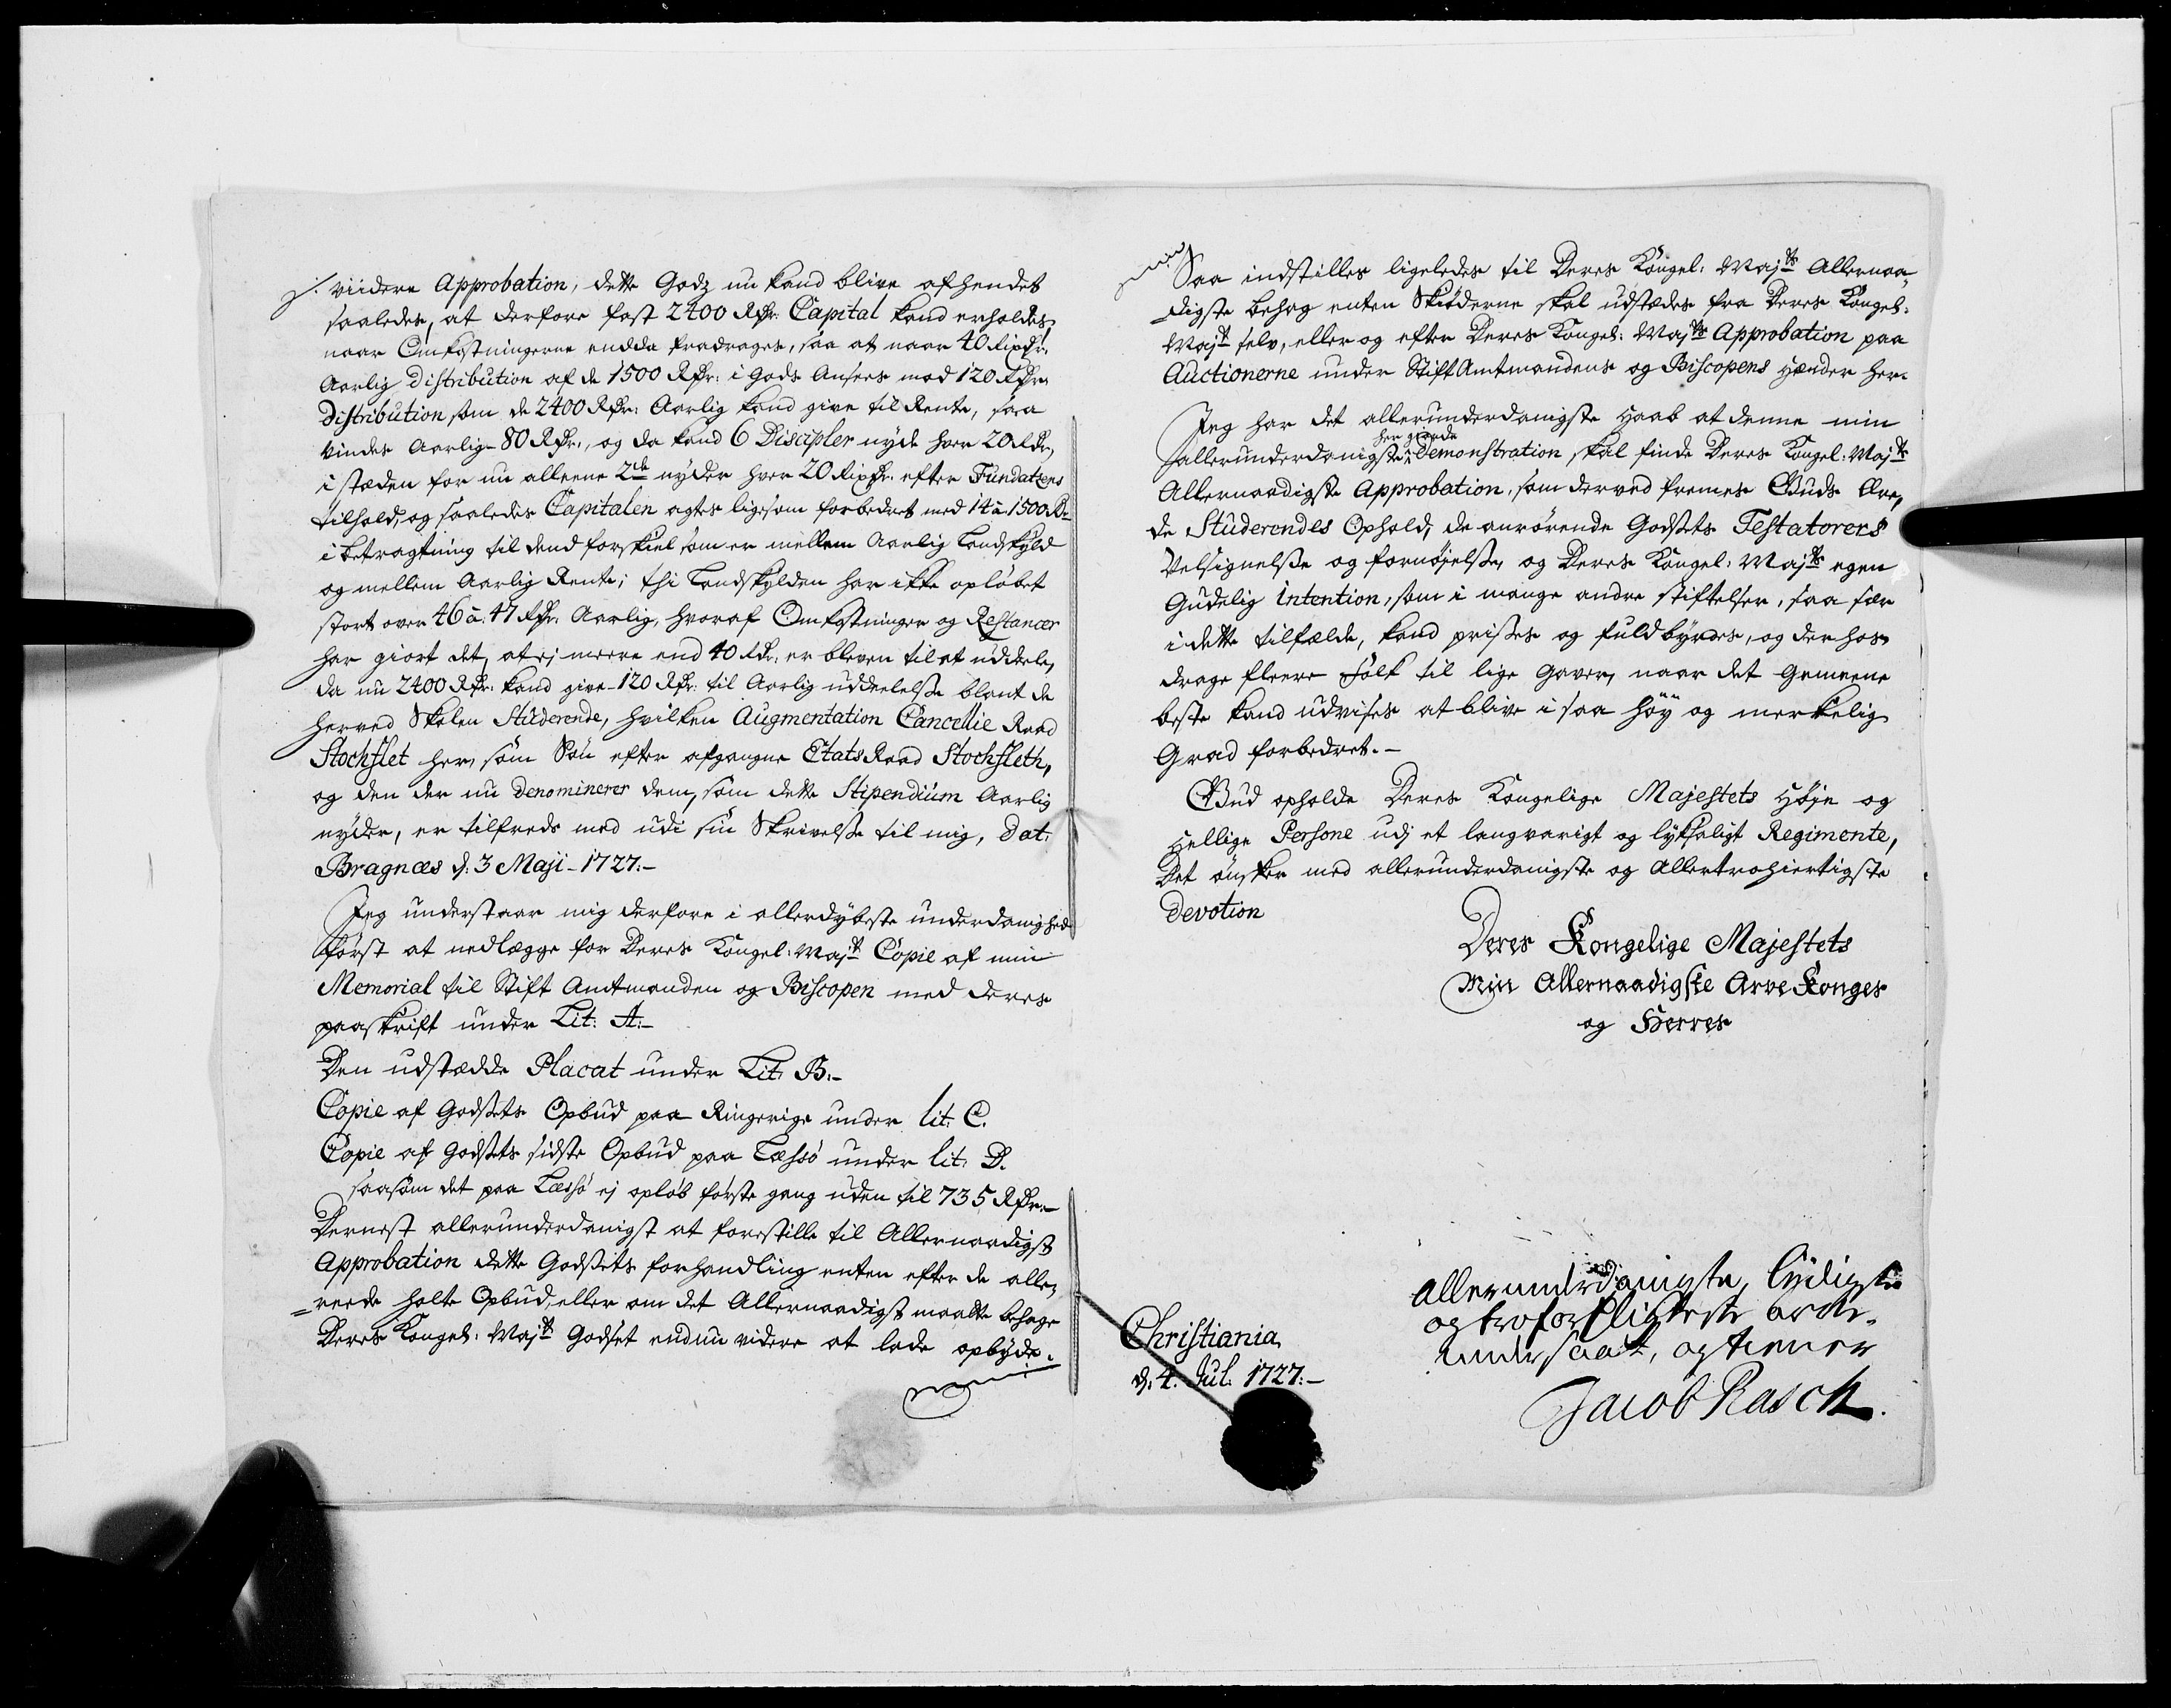 viidere Approbation, dette Godz nu kand blive afhendet
saaledes, at derfore fast 2400 Rdr: Capital kand erholdes,
naar Omkostningerne endda fradrages, saa at naar 40 Rixdr:
Aarlig distribution af de 1500 Rdr: i Gods Ansees mod 120 Rdrs
Distribution som de 2400 Rdr: Aarlig kand give til Rente, saa
vindes Aarlig 80 Rdr:, og da kand 6 Discipler nyde hver 20 Rdr,
i stæden for nu alleene 2de nyder hver 20 Rixdr. efter Fundatzens
tilhold, og saaledes Capitalen agtes ligesom forbedret med 14 à 1500 Rdr
i betragtning til dend forskiel som er mellem Aarlig Landskyld
og mellem Aarlig Rente; thi Landskylden har ikke opløbet
stort over 46 à 47 Rdr: Aarlig, hvoraf Omkostninger og Restancer
har giort det, at ej meere end 40 Rdr: er bleven til at uddeele,
da nu 2400 Rdr: kand give 120 Rdr: til Aarlig uddeelelse blant de
herved Skolen Studerende, hvilken Augmentation Cancellie Raad
Stochflet her, som Søn efter afgangne Etats Raad Stochfleth,
og den der nu denominerer dem, som dette Stipendium Aarlig
nyder, er tilfreds med udi sin Skrivelse til mig, dat:
Bragnæs d: 3 Maji 1727.-
Jeg understaar mig derfore i allerdybeste underdanighed
først at nedlægge for Deres Kongel: Majt Copie af min
Memorial til Stift Amtmanden og Biscopen med deres
paaskrift under Lit: A:-
Den udstædde Placat under Lit: B:-
Copie af Godsets Opbud paa Ringerige under lit: C.
Copie af Godsets sidste Opbud paa Læssø under lit: D.
saasom det paa Læssø ej opløb første gang uden til 735 Rdr:-
Dernest allerunderdanigst at forestille til Allernaadigst
Approbation dette Godsets forhandling enten efter de alle,
=reede holte Opbud, eller om det Allernaadigst maatte behage
Deres Kongel: Majt Godset endnu videre at lade opbyde.
Saa indstilles ligeledes til Deres Kongel: Majts Allernaa,
digste behag enten Skiøderne skal udstædes fra Deres Kongel:
Majt selv, eller og efter Deres Kongel: Majts Approbation paa
Auctionerne under Stift Amtmandens og Biscopens Hænder her.
Jeg har det allerunderdanigste Haab at denne min
her giorde
allerunderdanigste Demonstration skal finde Deres Kongel: Majts
Allernaadigste Approbation, som derved fremer Guds Ære,
de Studerendes Ophold, de anrørende Godsets Testatorers
Velsignelse og fornøjelse, og Deres Kongel: Majts egen
Gudelig intention, som i mange andre stiftelser, saa især
i dette tilfælde, kand prises og fuldbyrdes, og derhos
drage fleere Folk til lige Gaver, naar det Gemeene
beste kand udvises at blive i saa høy og merkelig
Grad forbedret.-
Gud opholde Deres Kongelige Majestets Høje og
Hellige Persone udj et langvarigt og lyksaligt Regimente,
Det ønsker med allerunderdanigste og Allertrohiertigste
Devotion
Deres Kongelige Majestets
Min Allernaadigste Arve Konges
og Herres
Christiania
d: 4. Jul: 1727.-
allerunderdanigste, lydigste
og troforpligteste arve
undersaat, og tiener
Jacob Rasch.